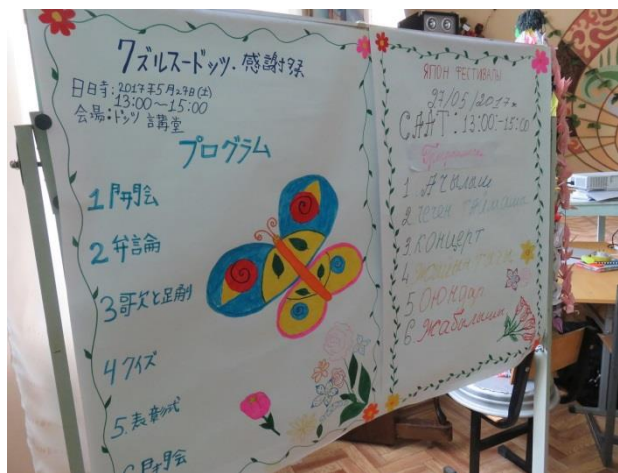 クズルスードッツ.感謝祭
日時:2017年5月27日(土)
13:00~15:00
会場:ドッツ講堂
プログラム
1 開会
2 弁論
3 歌と
4 クイズ
5.表彰式
ЯПОН ФЕСТИВАЛЫ
27/05/2017ж
СААТ: 13:00-15:00
1. Ачылыш
2. Чечен
3. Концерт
4.
5. Оюндар
6. Жабылышы